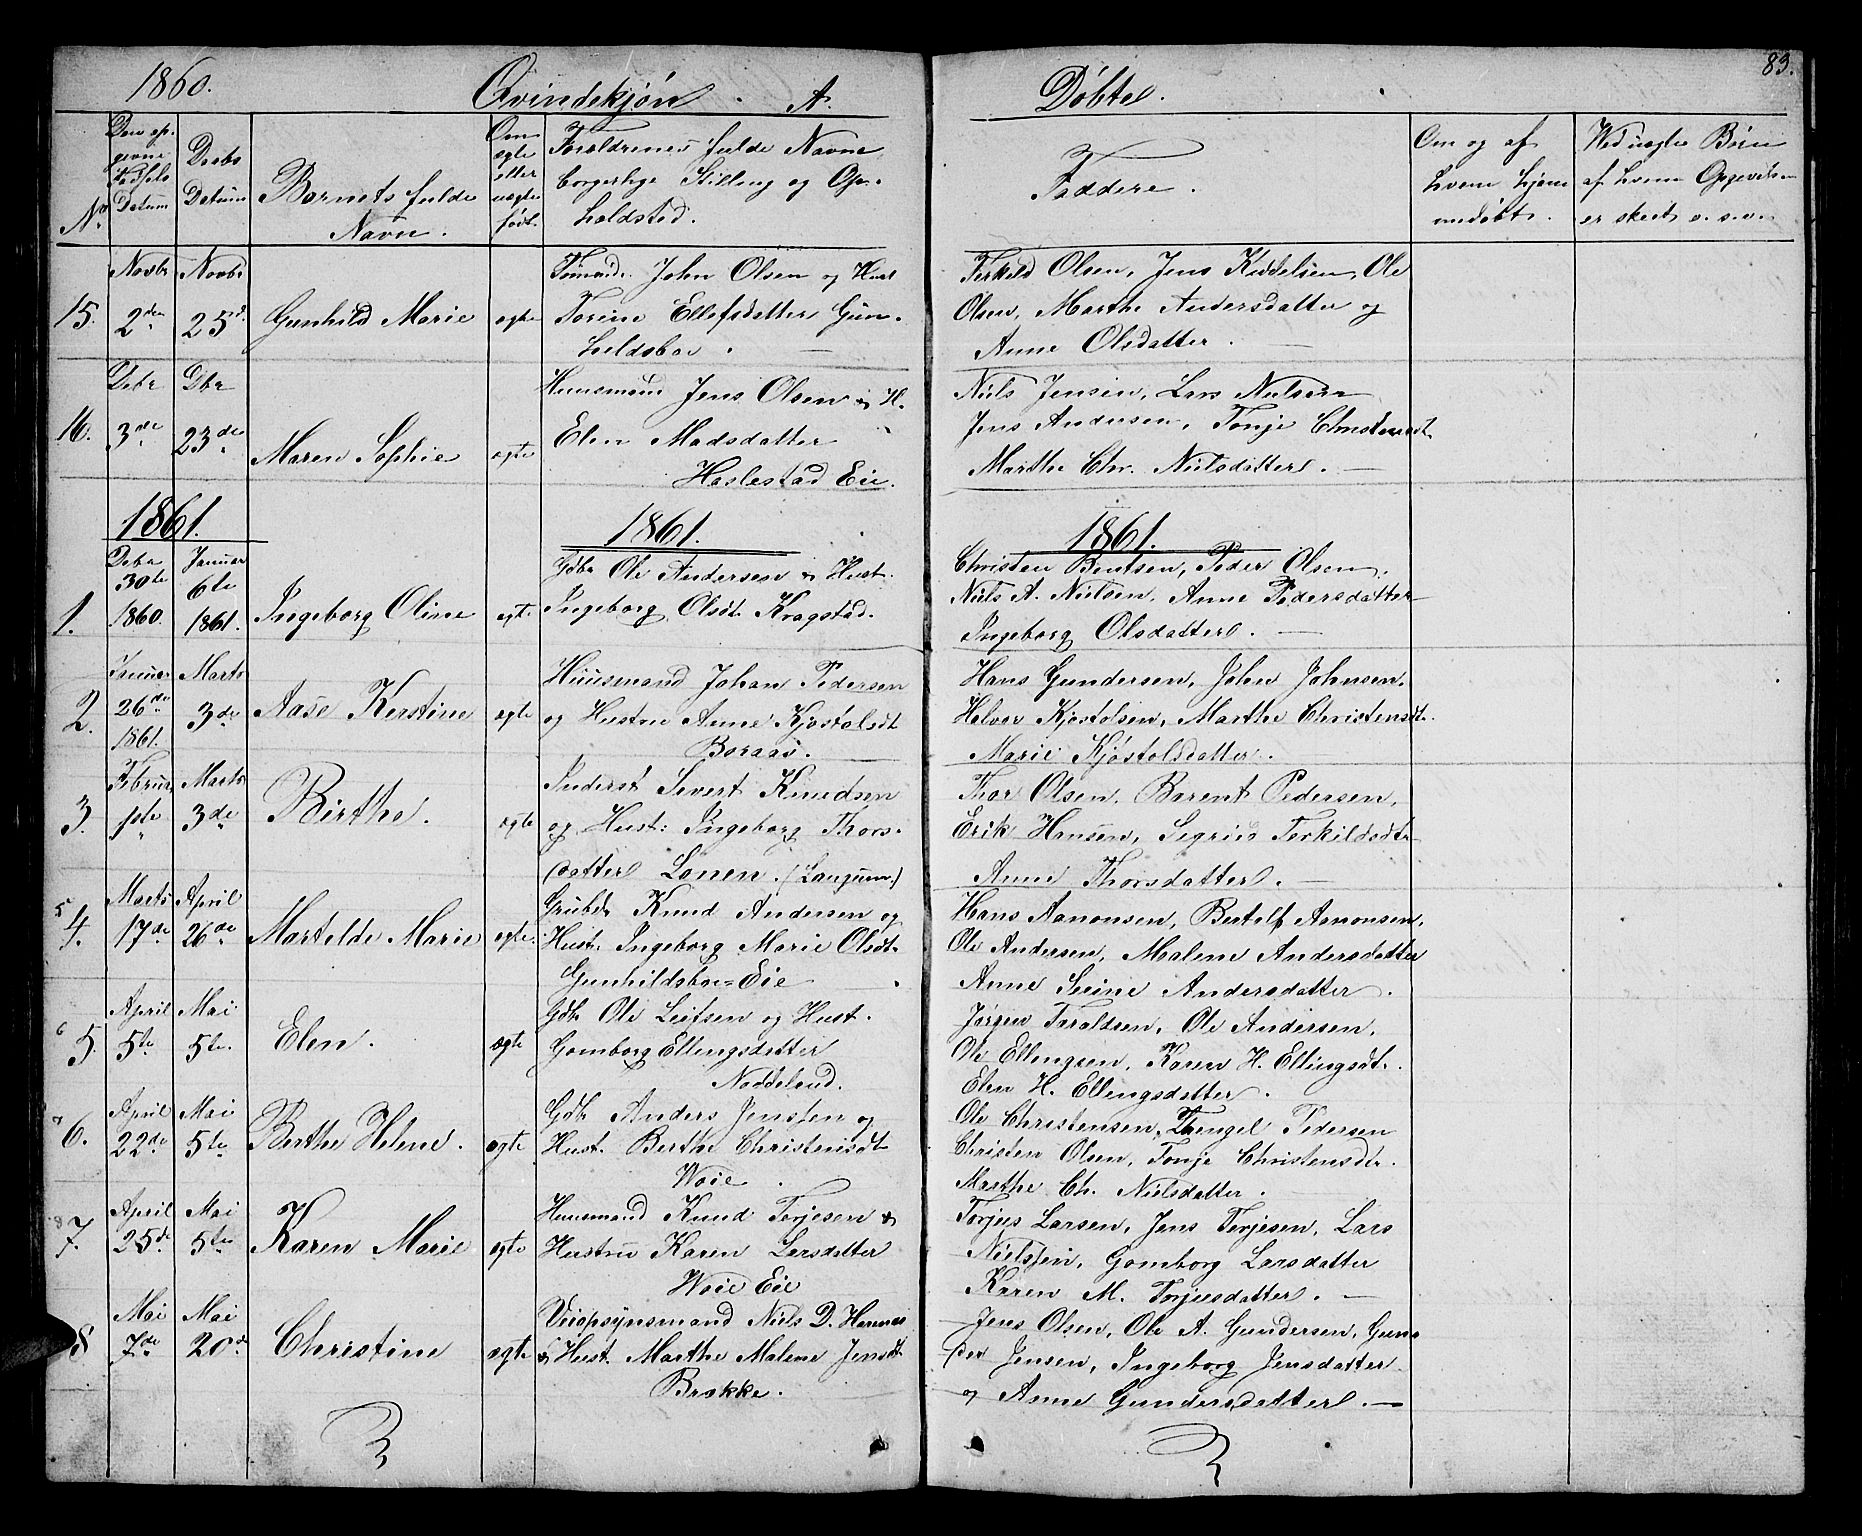 1860.
Qvindekjøn. A.
Døbte.
83.
No.
Den op-
givne
Fødsels
Datum
Daabs
Datum
Barnets fulde
Navn.
Om
ægte
eller
uægte
født.
Forældrenes fulde Navne
borgerlige Stilling og Op-
holdsted.
Faddere.
Om og af
hvem hjem
medøbt.
Ved uægte Børn
af hvem Opgivelsen
er skeet o. s. v.
Novbr Novbr
15. 2den 25d. Gunhild Marie ægte
Tømmd. John Olsen og Hust
Torine Ellefsdatter Gun-
hildsboe.
Terkild Olsen, Jens Kiddelsen, Ole
Olsen, Marthe Andersdatter og
Anne Olsdatter.
Debr Dbr
16. 3de 23de Maren Sophie ægte
Huusmand Jens Olsen & H.
Elen Madsdatter
Haslestad Eie.
Niels Jensen, Lars Nielsen
Jens Andersen, Tonje Christensdt
Marthe Chr. Nielsdatter.
1861.
1861.
1861.
Debr Januar
30te 6te
1. 1860. 1861. Ingeborg Oline ægte
Gdbr Ole Andersen & Hust.
Ingeborg Olsdt. Kragstad.
Christen Bentsen, Peder Olsen,
Niels A. Nielsen, Anne Pedersdatter
Ingeborg Olsdatter.
Januar Marts
2. 26de 1861. 3de Aase Kerstine ægte
Huusmand Johan Pedersen
og Hustru Anne Kjøstolsdt
Boraas.
Hans Gundersen, John Johnsen,
Halvor Kjøstolsen, Marthe Christensdt.
Marie Kjøstolsdatter.
Februar Marts
3. 1ste 3de Birthe. ægte
Inderst Sivert Knudsen
og Hust: Ingeborg Thors-
datter Lønen. (Langum.)
Thor Olsen, Barent Pedersen,
Erik Hansen, Sigrid Terkildsdtr
Anne Thorsdatter.
Marts April
5 4. 17de 26de Martilde Marie ægte.
Grubeb. Knud Andersen og
Hust. Ingeborg Marie Olsdt.
Gunhildsboe=Eie
Hans Aanonsen, Bertolf Aanonsen,
Ole Andersen, Malene Andersdatter
Anne Serine Andersdatter.
April Mai
6 5. 5te 5te. Elen. ægte
Gdb. Ole Leifsen og Hust.
Gomborg Ellingsdatter
Naddeland.
Jørgen Taraldsen, Ole Andersen,
Ole Ellingsen, Karen H. Ellingsdt.
Elen H. Ellingsdatter.
April Mai
7 6. 22de 5te Berthe Helene. ægte
Gdb. Anders Jensen og
Hust. Berthe Christensdt
Woie.
Ole Christensen, Thengel Pedersen
Christen Olsen, Tonje Christensdtr.
Marthe Ch. Nielsdatter.
April Mai
8 7. 25de 5te Karen Marie ægte
Huusmand Knud Torjesen &
Hustru Karen Larsdatter
Woie Eie
Torjus Larsen, Jens Terjesen, Lars
Nielsen, Gomborg Larsdatter
Karen M. Torjusdatter.
Mai Mai
8 7de 20d Christine ægte
Veiopsynsmand Niels D. Hannas
& Hust. Marthe Malene Jensdt.
Brække.
Jens Olsen, Ole A. Gundersen, Gun-
der Jensen, Ingeborg Jensdatter
og Anne Gundersdatter.